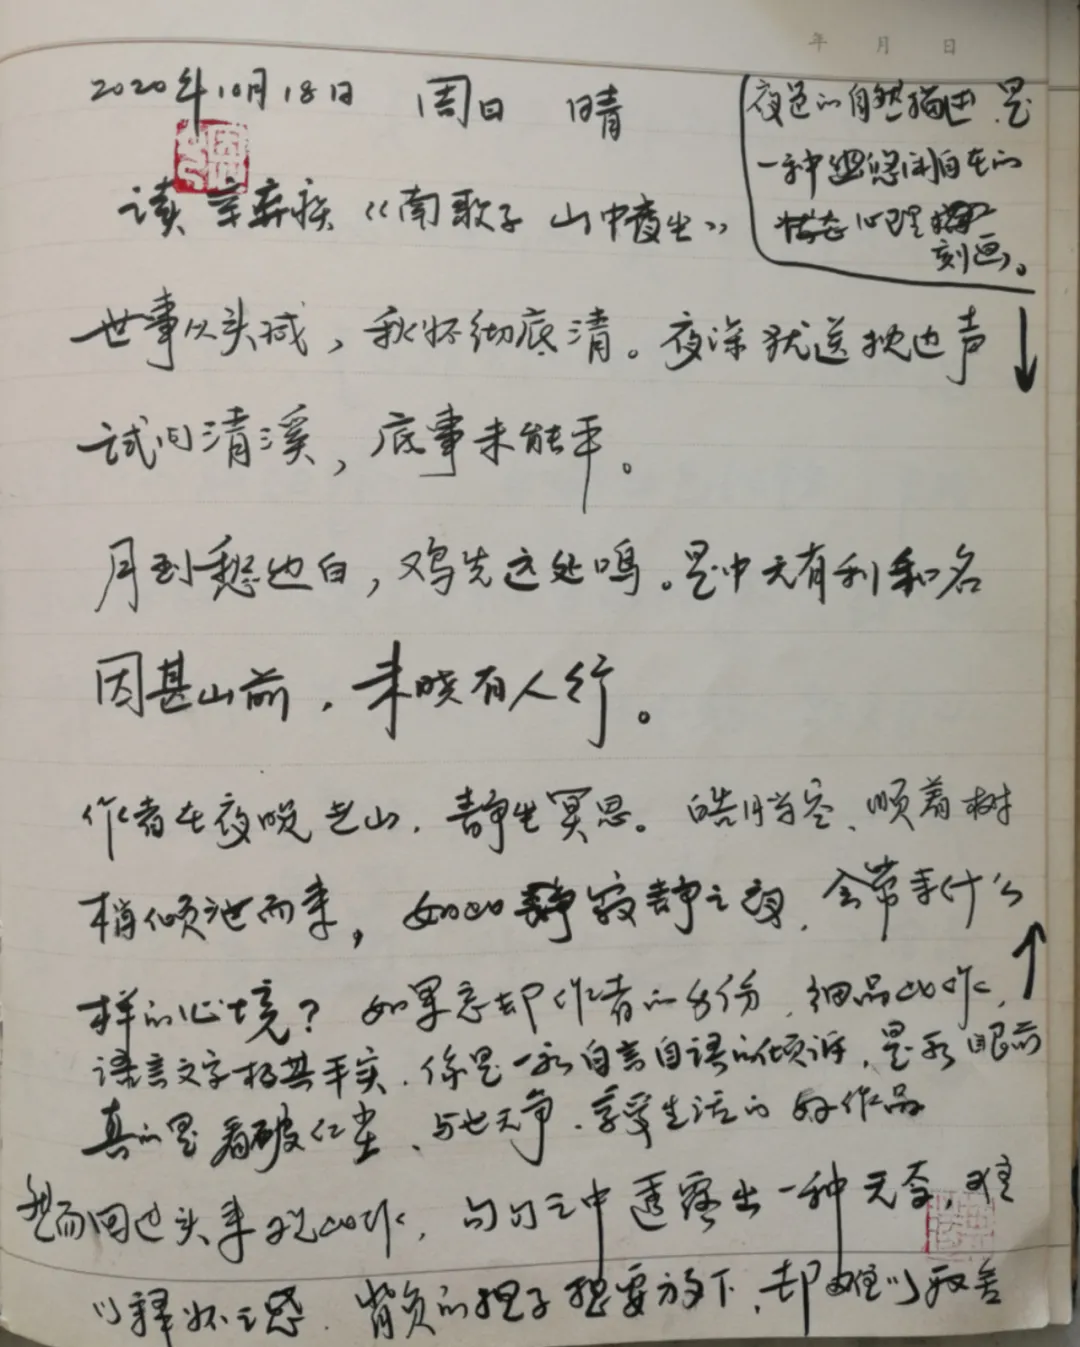 年 月 日
2020年10月18日 周日 晴
夜色的自然描述,是
一种悠闲自在的
状态心理
刻画。
读辛弃疾《南歌子 山中夜坐》
世事从头减,秋怀彻底清。夜深犹送枕边声
试问清溪,底事未能平。
月到愁边白,鸡先远处鸣。是中无有利和名
因甚山前,未晓有人行。
作者在夜晚 山,静坐冥思。皓月当空、顺着树
梢倾泄而来,如此 寂静之夜,会带来什么
样的心境?如果忘却作者的身份,细品此作,
语言文字极其平实,像是一 自言自语的倾诉,是 眼前
真的是看破红尘、与世无争、享受生活的好作品
然而回过头来观此作,句句之中透露出一种无奈,难
以释怀之感。背负的担子想要放下,却难以